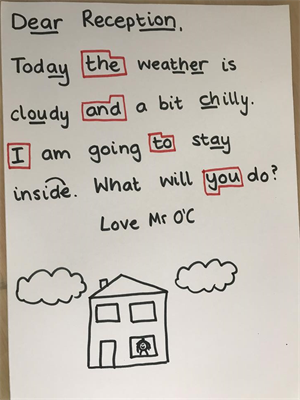 Dear Reception,
Today the weather is
cloudy and a bit chilly.
I am going to stay
inside. What will you do?
Love Mr O'C